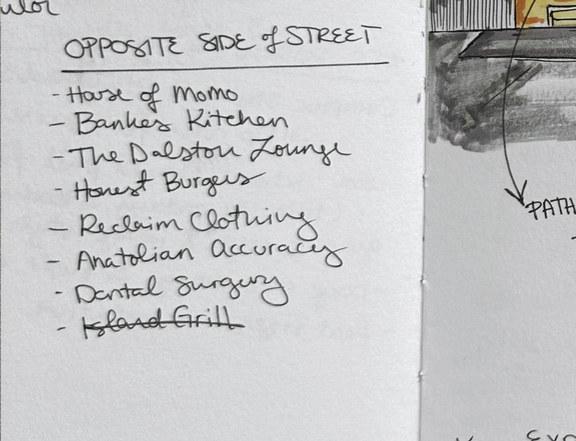 OPPOSITE SIDE of STREET
- House of Momo
- Bankes Kitchen
- The Dalston Lounge
- Honest Burgers
- Reclaim Clothing
- Anatolian Accuracy
- Dental Surgery
- Island Grill
PATH